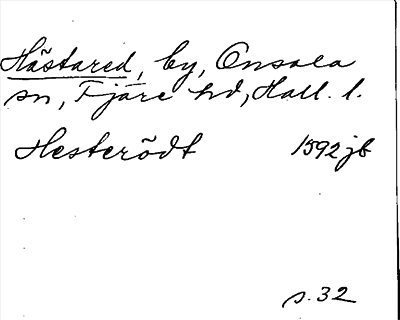 Hästared, by, Onsala
sn, Fjäre hd, Hall. l.
Hesterödt 1592 jb
s. 32